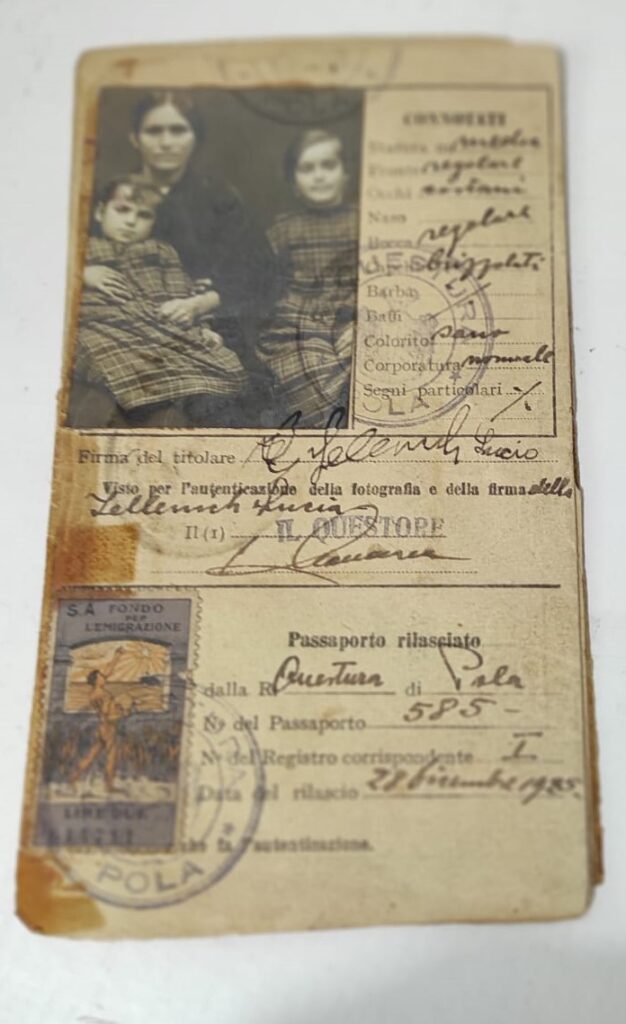 CONNOTATI
Statura media
Fronte regolare
Occhi castani
Naso
Bocca regolare
Capelli brizzolati
Barba
Baffi
Colorito sano
Corporatura normale
Segni particolari %
POLA
Firma del titolare Lucia
Visto per l'autenticazione della fotografia e della firma della
Lucia
Il (1) IL QUESTORE
S.A FONDO
PER
L'EMIGRAZIONE
LIRE DUE
Passaporto rilasciato
dalla R. Questura di Pola
Nº del Passaporto 585-
Nº del Registro corrispondente I
Data del rilascio 28 Dicembre 1925
che fa l'autenticazione.
POLA